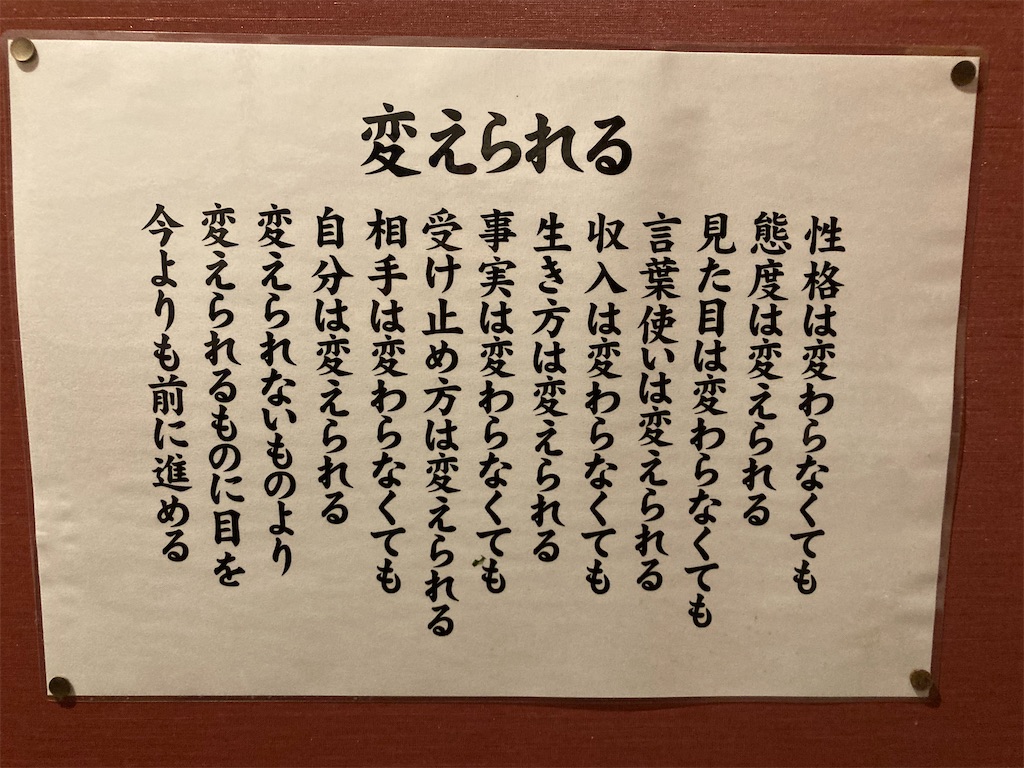 変えられる
性格は変わらなくても
態度は変えられる
見た目は変わらなくても
言葉使いは変えられる
収入は変わらなくても
生き方は変えられる
事実は変わらなくても
受け止め方は変えられる
相手は変わらなくても
自分は変えられる
変えられないものより
変えられるものに目を
今よりも前に進める